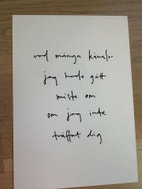 vad många känslor
jag hade gått
miste om
om jag inte
träffat dig